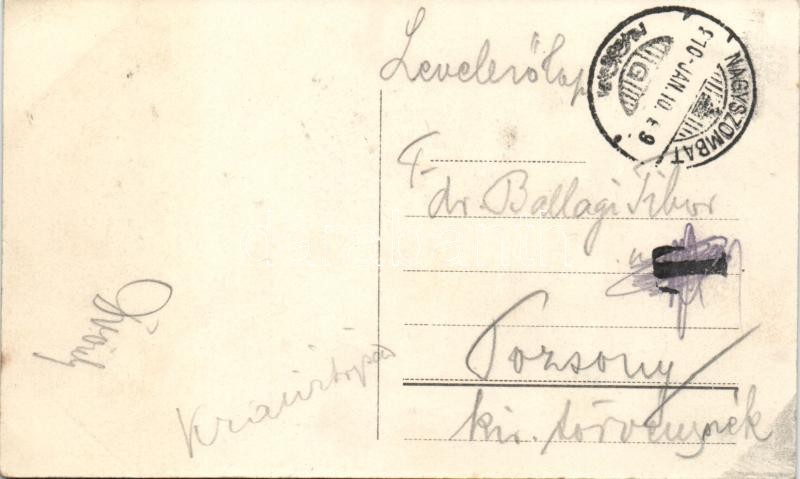 Levelezőlap
NAGYSZOMBAT
910 JAN. 10.
T. dr. Ballagi Tibor
T
Pozsony
kir. törvényszék